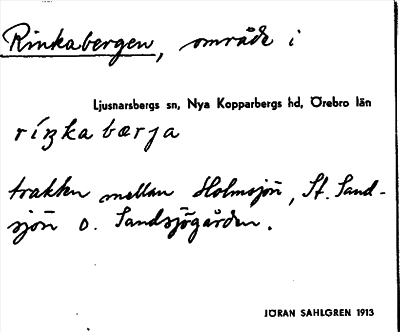 Rinkabergen, område i
Ljusnarsbergs sn, Nya Kopparbergs hd, Örebro län
ríŋkabærja
trakten mellan Holmsjön, St. Sand-
sjön o. Sandsjögården.
JÖRAN SAHLGREN 1913